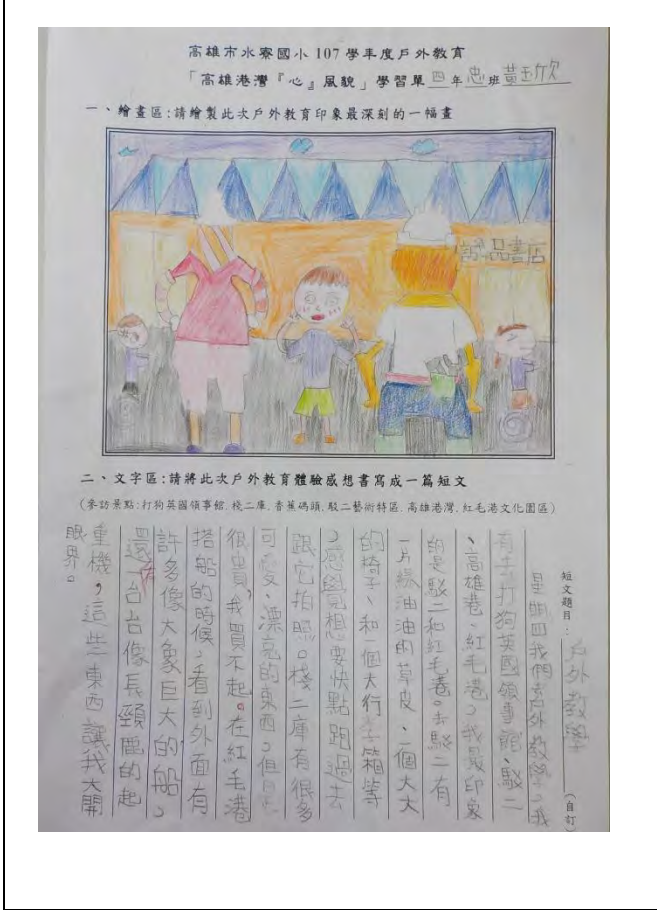 高雄市水寮國小107學年度戶外教育
「高雄港灣『心』風貌」學習單 四年忠班 黃玉欣
一、繪畫區:請繪製此次戶外教育印象最深刻的一幅畫
誠品書店
二、文字區:請將此次戶外教育體驗感想書寫成一篇短文
(參訪景點:打狗英國領事館、棧二庫、香蕉碼頭、駁二藝術特區、高雄港灣、紅毛港文化園區)
短文題目:戶外教學(自訂)
星期四我們去戶外教學,我
有去打狗英國領事館、駁二
、高雄港、紅毛港,我最印象
的是駁二和紅毛港。去駁二有
一片綠油油的草皮、一個大大
的椅子、和一個大行李箱等
,感覺想要快點跑過去
跟它拍照。棧二庫有很多
可愛、漂亮的東西,但是
很貴,我買不起。在紅毛港
搭船的時候,看到外面有
許多像大象巨大的船,
還有一台台像長頸鹿的起
重機,這些東西讓我大開
眼界。